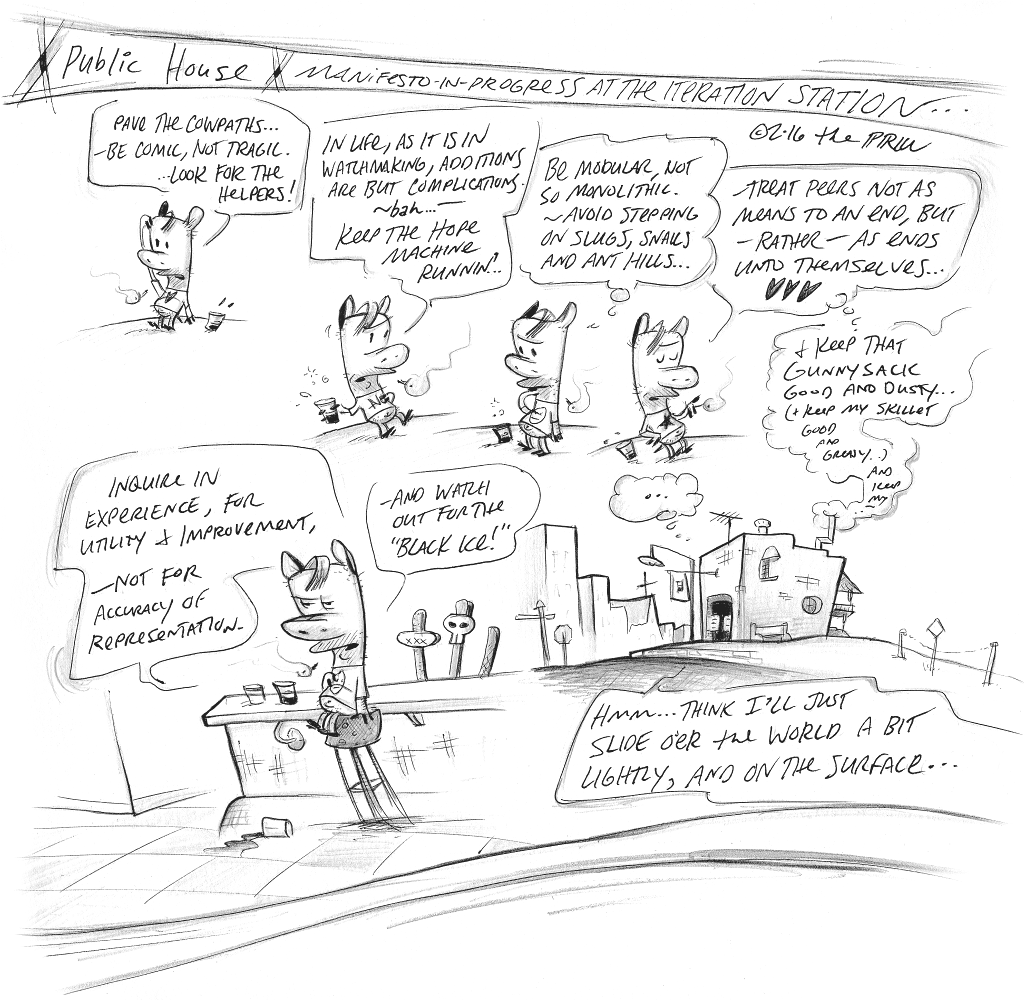 Public House
MANIFESTO-IN-PROGRESS AT THE ITERATION STATION...
©2·16 the
PAVE THE COWPATHS...
—BE COMIC, NOT TRAGIC.
...LOOK FOR THE
HELPERS!
IN LIFE, AS IT IS IN
WATCHMAKING, ADDITIONS
ARE BUT COMPLICATIONS.
~bah...—
KEEP THE HOPE
MACHINE
RUNNIN'...
BE MODULAR, NOT
SO MONOLITHIC.
~AVOID STEPPING
ON SLUGS, SNAILS
AND ANT HILLS...
—TREAT PEERS NOT AS
MEANS TO AN END, BUT
—RATHER—AS ENDS
UNTO THEMSELVES...
+ KEEP THAT
GUNNYSACK
GOOD AND DUSTY...
(+ KEEP MY SKILLET
GOOD
AND
GREASY..)
AND
KEEP
MY
INQUIRE IN
EXPERIENCE, FOR
UTILITY & IMPROVEMENT,
—NOT FOR
ACCURACY OF
REPRESENTATION..
—AND WATCH
OUT FOR THE
"BLACK ICE!"
...
N
XXX
HMM...THINK I'LL JUST
SLIDE O'ER the WORLD A BIT
LIGHTLY, AND ON THE SURFACE...